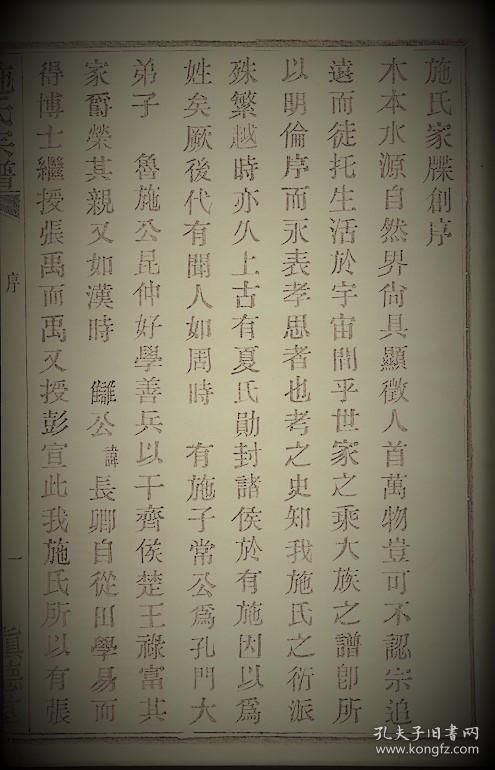 施氏家牒創序
木本水源自然界尙具顯徵人首萬物豈可不認宗追
遠而徒托生活於宇宙間乎世家之乘大族之譜卽所
以明倫序而永表孝思者也考之史知我施氏之衍派
殊繁越時亦久上古有夏氏勛封諸侯於有施因以爲
姓矣厥後代有聞人如周時 有施子常公爲孔門大
弟子 魯施公昆仲好學善兵以干齊侯楚王祿富其
家爵榮其親又如漢時 讎公諱長卿自從田學易而
得博士繼授張禹而禹又授彭宣此我施氏所以有張
施氏宗譜
序
一
眞德堂
孔夫子旧书网
www.kongfz.com